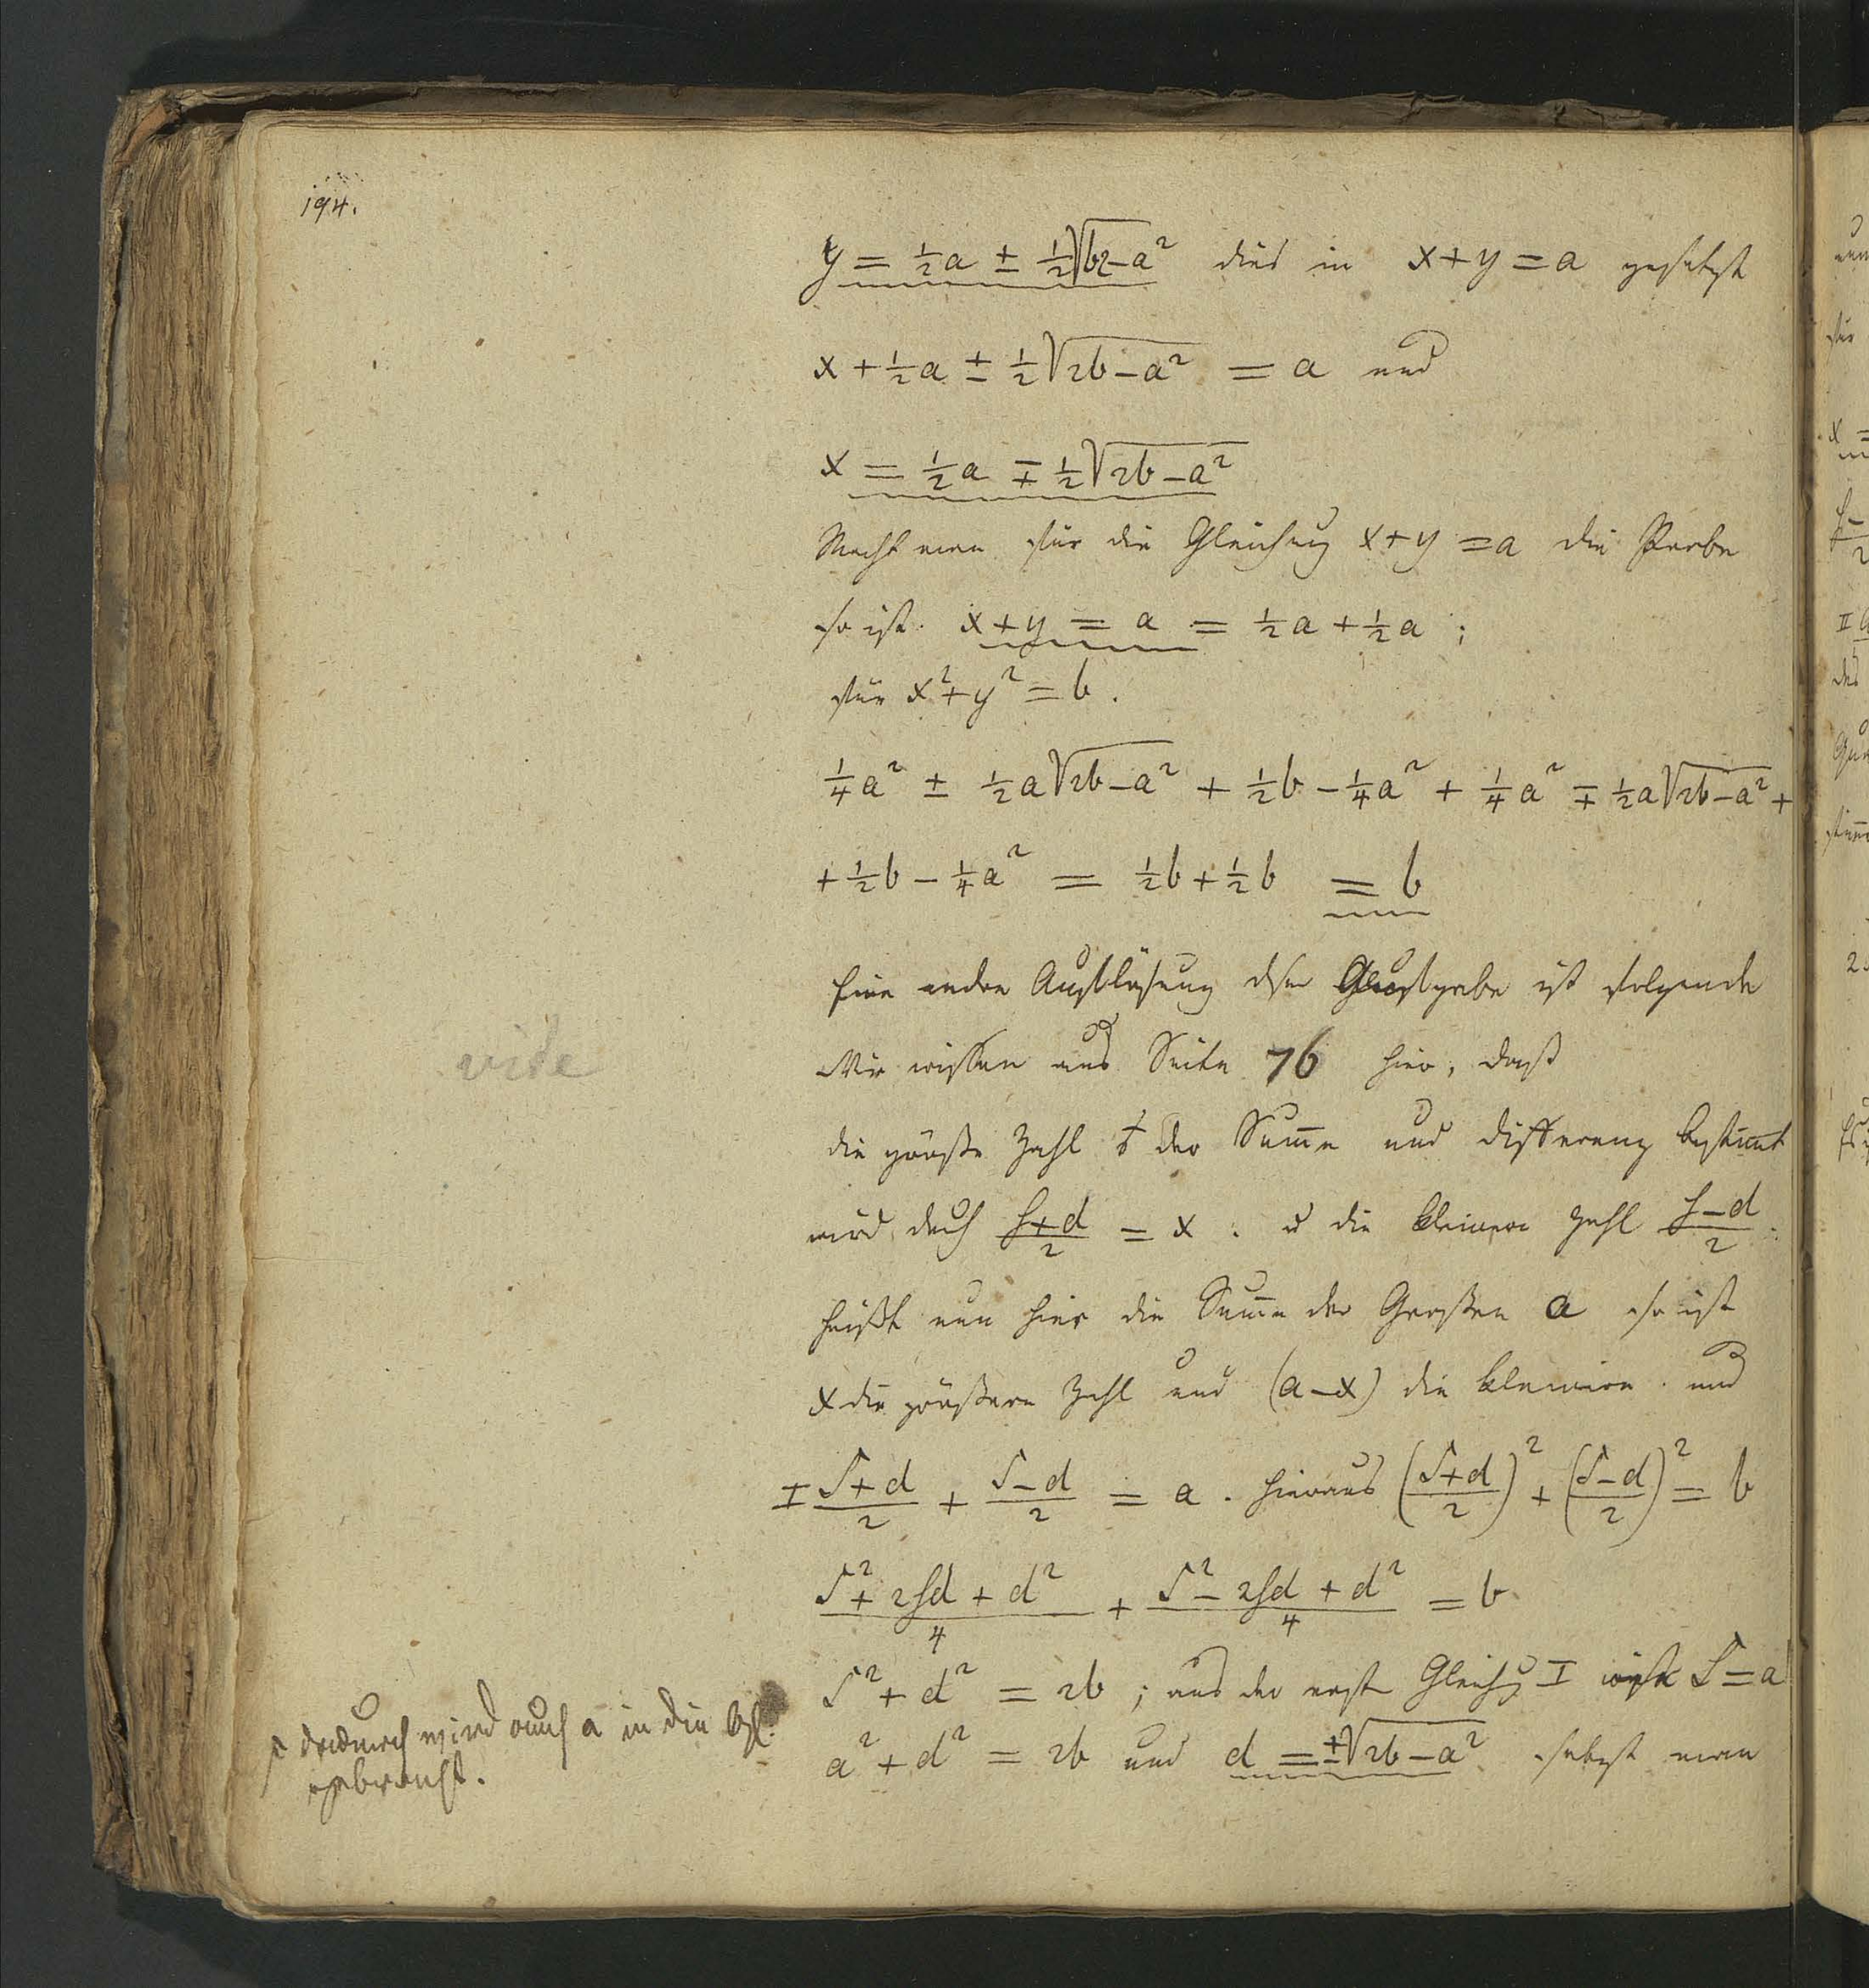 194.
y = ½a ± ½√b2-a² dies in x+y = a gesetzt
x + ½a ± ½√2b-a² = a und
x = ½a ∓ ½√2b-a²
Macht man für die Gleichung x+y = a die Probe
so ist x+y = a = ½a + ½a ;
für x²+y² = b.
¼a² ± ½a√2b-a² + ½b - ¼a² + ¼a² ∓ ½a√2b-a² +
+ ½b - ¼a² = ½b + ½b = b
Eine andre Auflösung ist folgende
Wir wissen aus Seite 76 hier, daß
die größte Zahl der Summe und differenz bestimt
wird durch S+d/2 = x. u die kleinere Zahl S-d/2.
heißt nun hier die Summe der Großen a so ist
x die größere Zahl und (a-x) die kleinere. und
I S+d/2 + S-d/2 = a. hieraus (S+d/2)² + (S-d/2)² = b
S²+2Sd+d²/4 + S²-2Sd+d²/4 = b
S²+d² = 2b ; aus der erste Gleichg I ist S=a
a²+d² = 2b und d = ±√2b-a² setzt man
vide
dadurch wird auch a in die Gl:
gebracht.